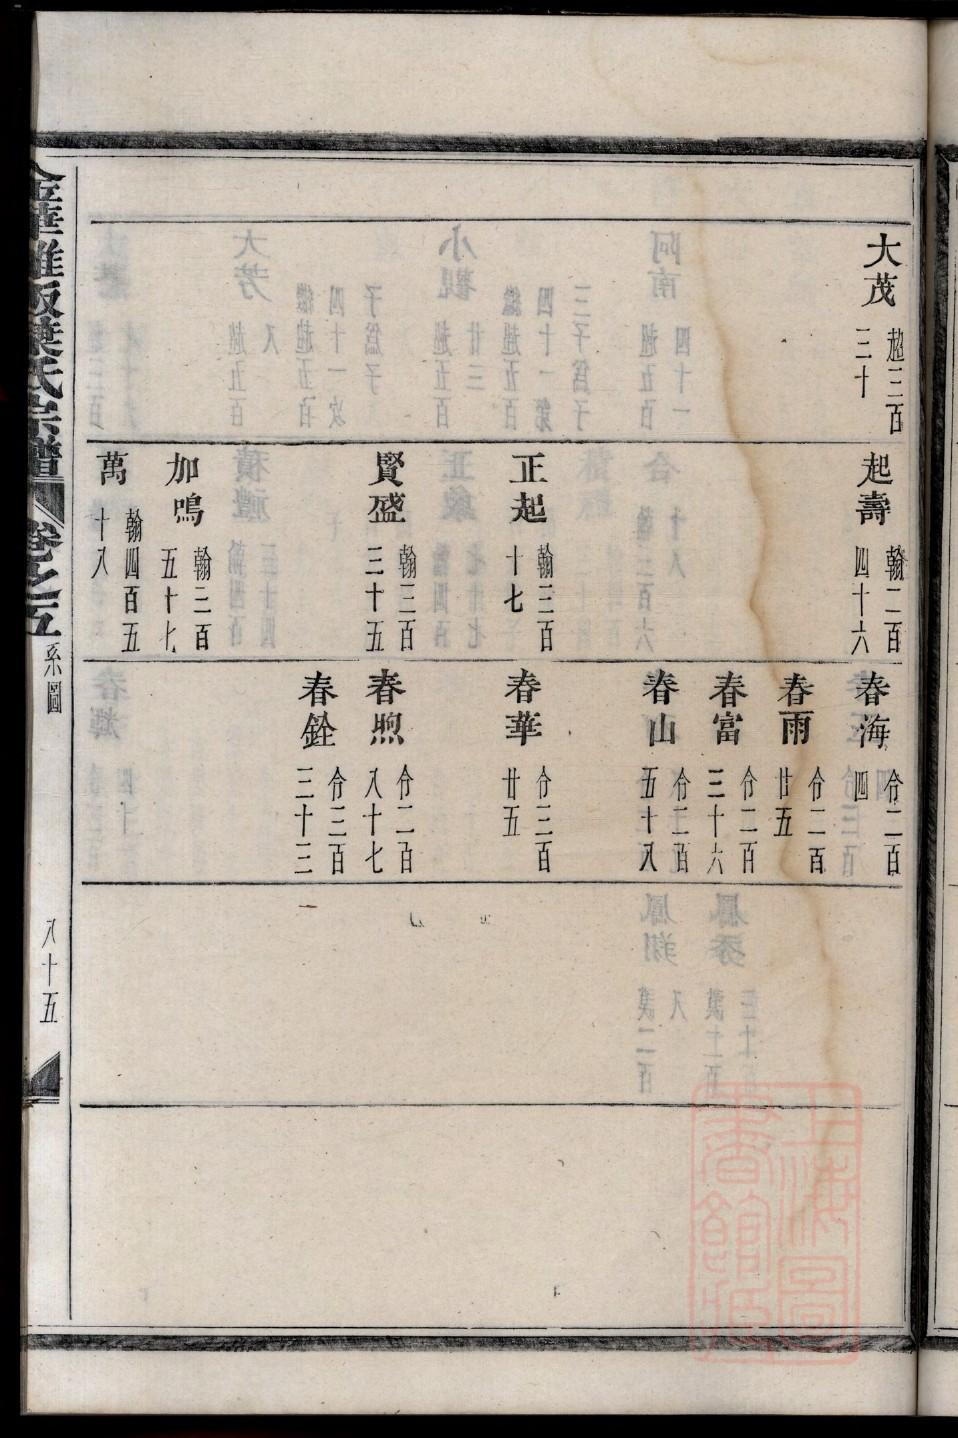 大茂 超三百三十
起壽 翰二百四十六
正起 翰三百十七
賢盛 翰三百三十五
加鳴 翰二百五十七
萬 翰四百五十八
春海 佾二百四
春雨 佾二百廿五
春富 佾二百三十六
春山 佾二百五十八
春華 佾三百廿五
春煦 佾二百八十七
春銓 佾三百三十三
葉氏宗譜
卷之五
系圖
八十五
上海圖書館藏